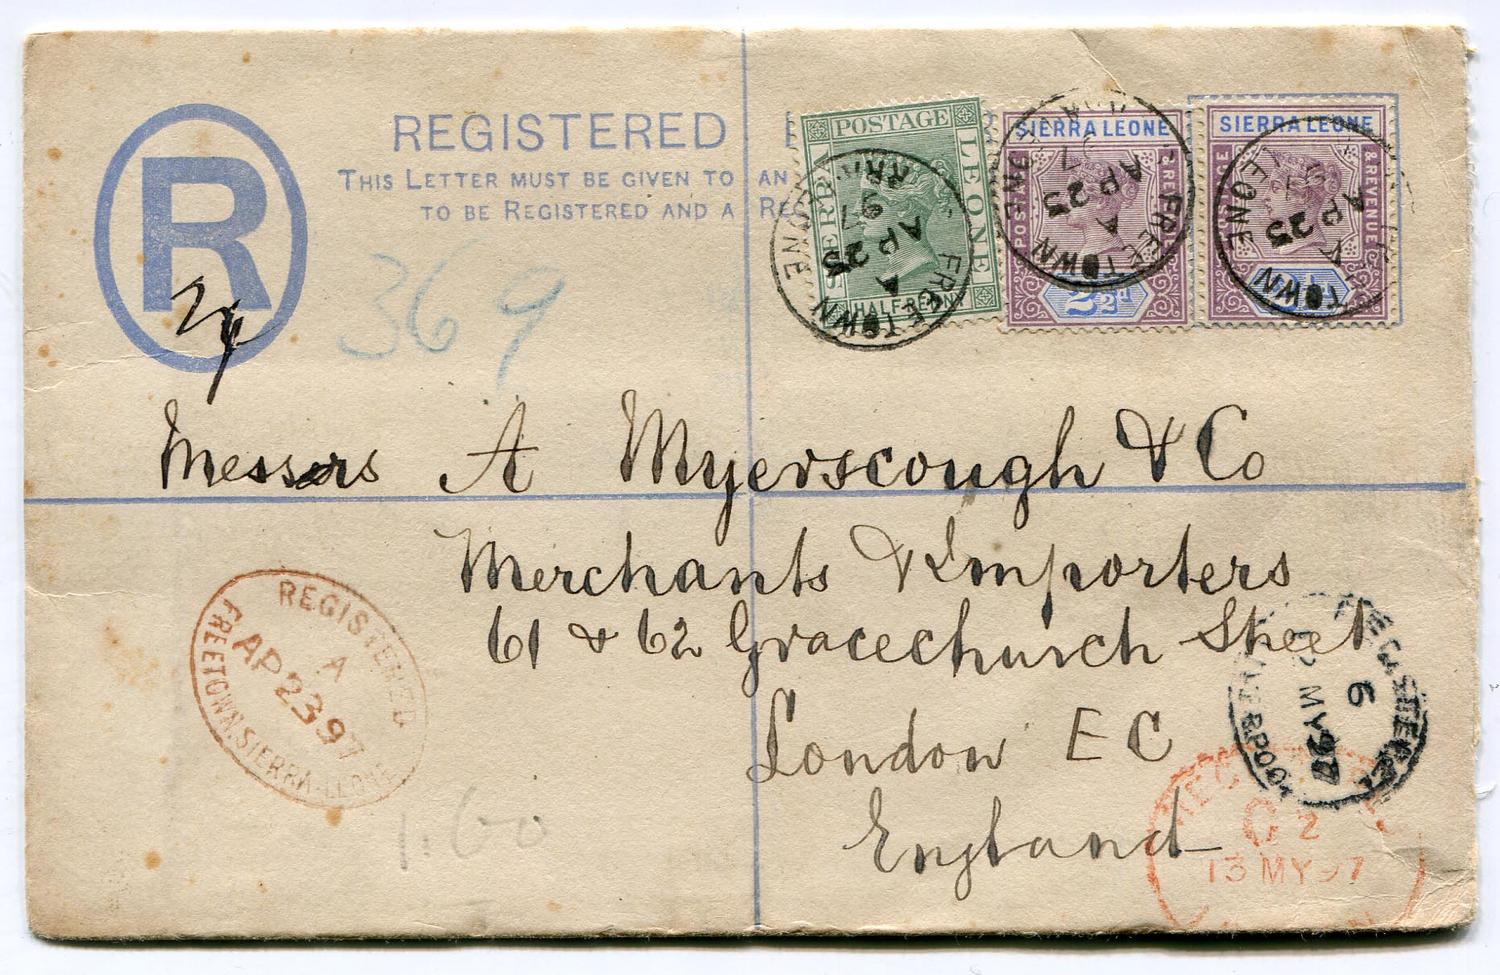 R
REGISTERED
THIS LETTER MUST BE GIVEN TO AN
TO BE REGISTERED AND A REC
POSTAGE
SIERRA LEONE
HALF PENNY
SIERRA LEONE
POSTAGE & REVENUE
2½d
SIERRA LEONE
& REVENUE
FREETOWN
A
AP 23
97
SIERRA LEONE
FREETOWN
A
AP 23
97
LEONE
FREETOWN
A
AP 23
97
LEONE
369
Messers A Myerscough & Co
Merchants & Importers
61 & 62 Gracechurch Street
London EC
England
REGISTERED
A
AP 23 97
FREETOWN. SIERRA-LEONE
REGISTERED
6
MY 97
LIVERPOOL
G 2
13 MY 97
1.60